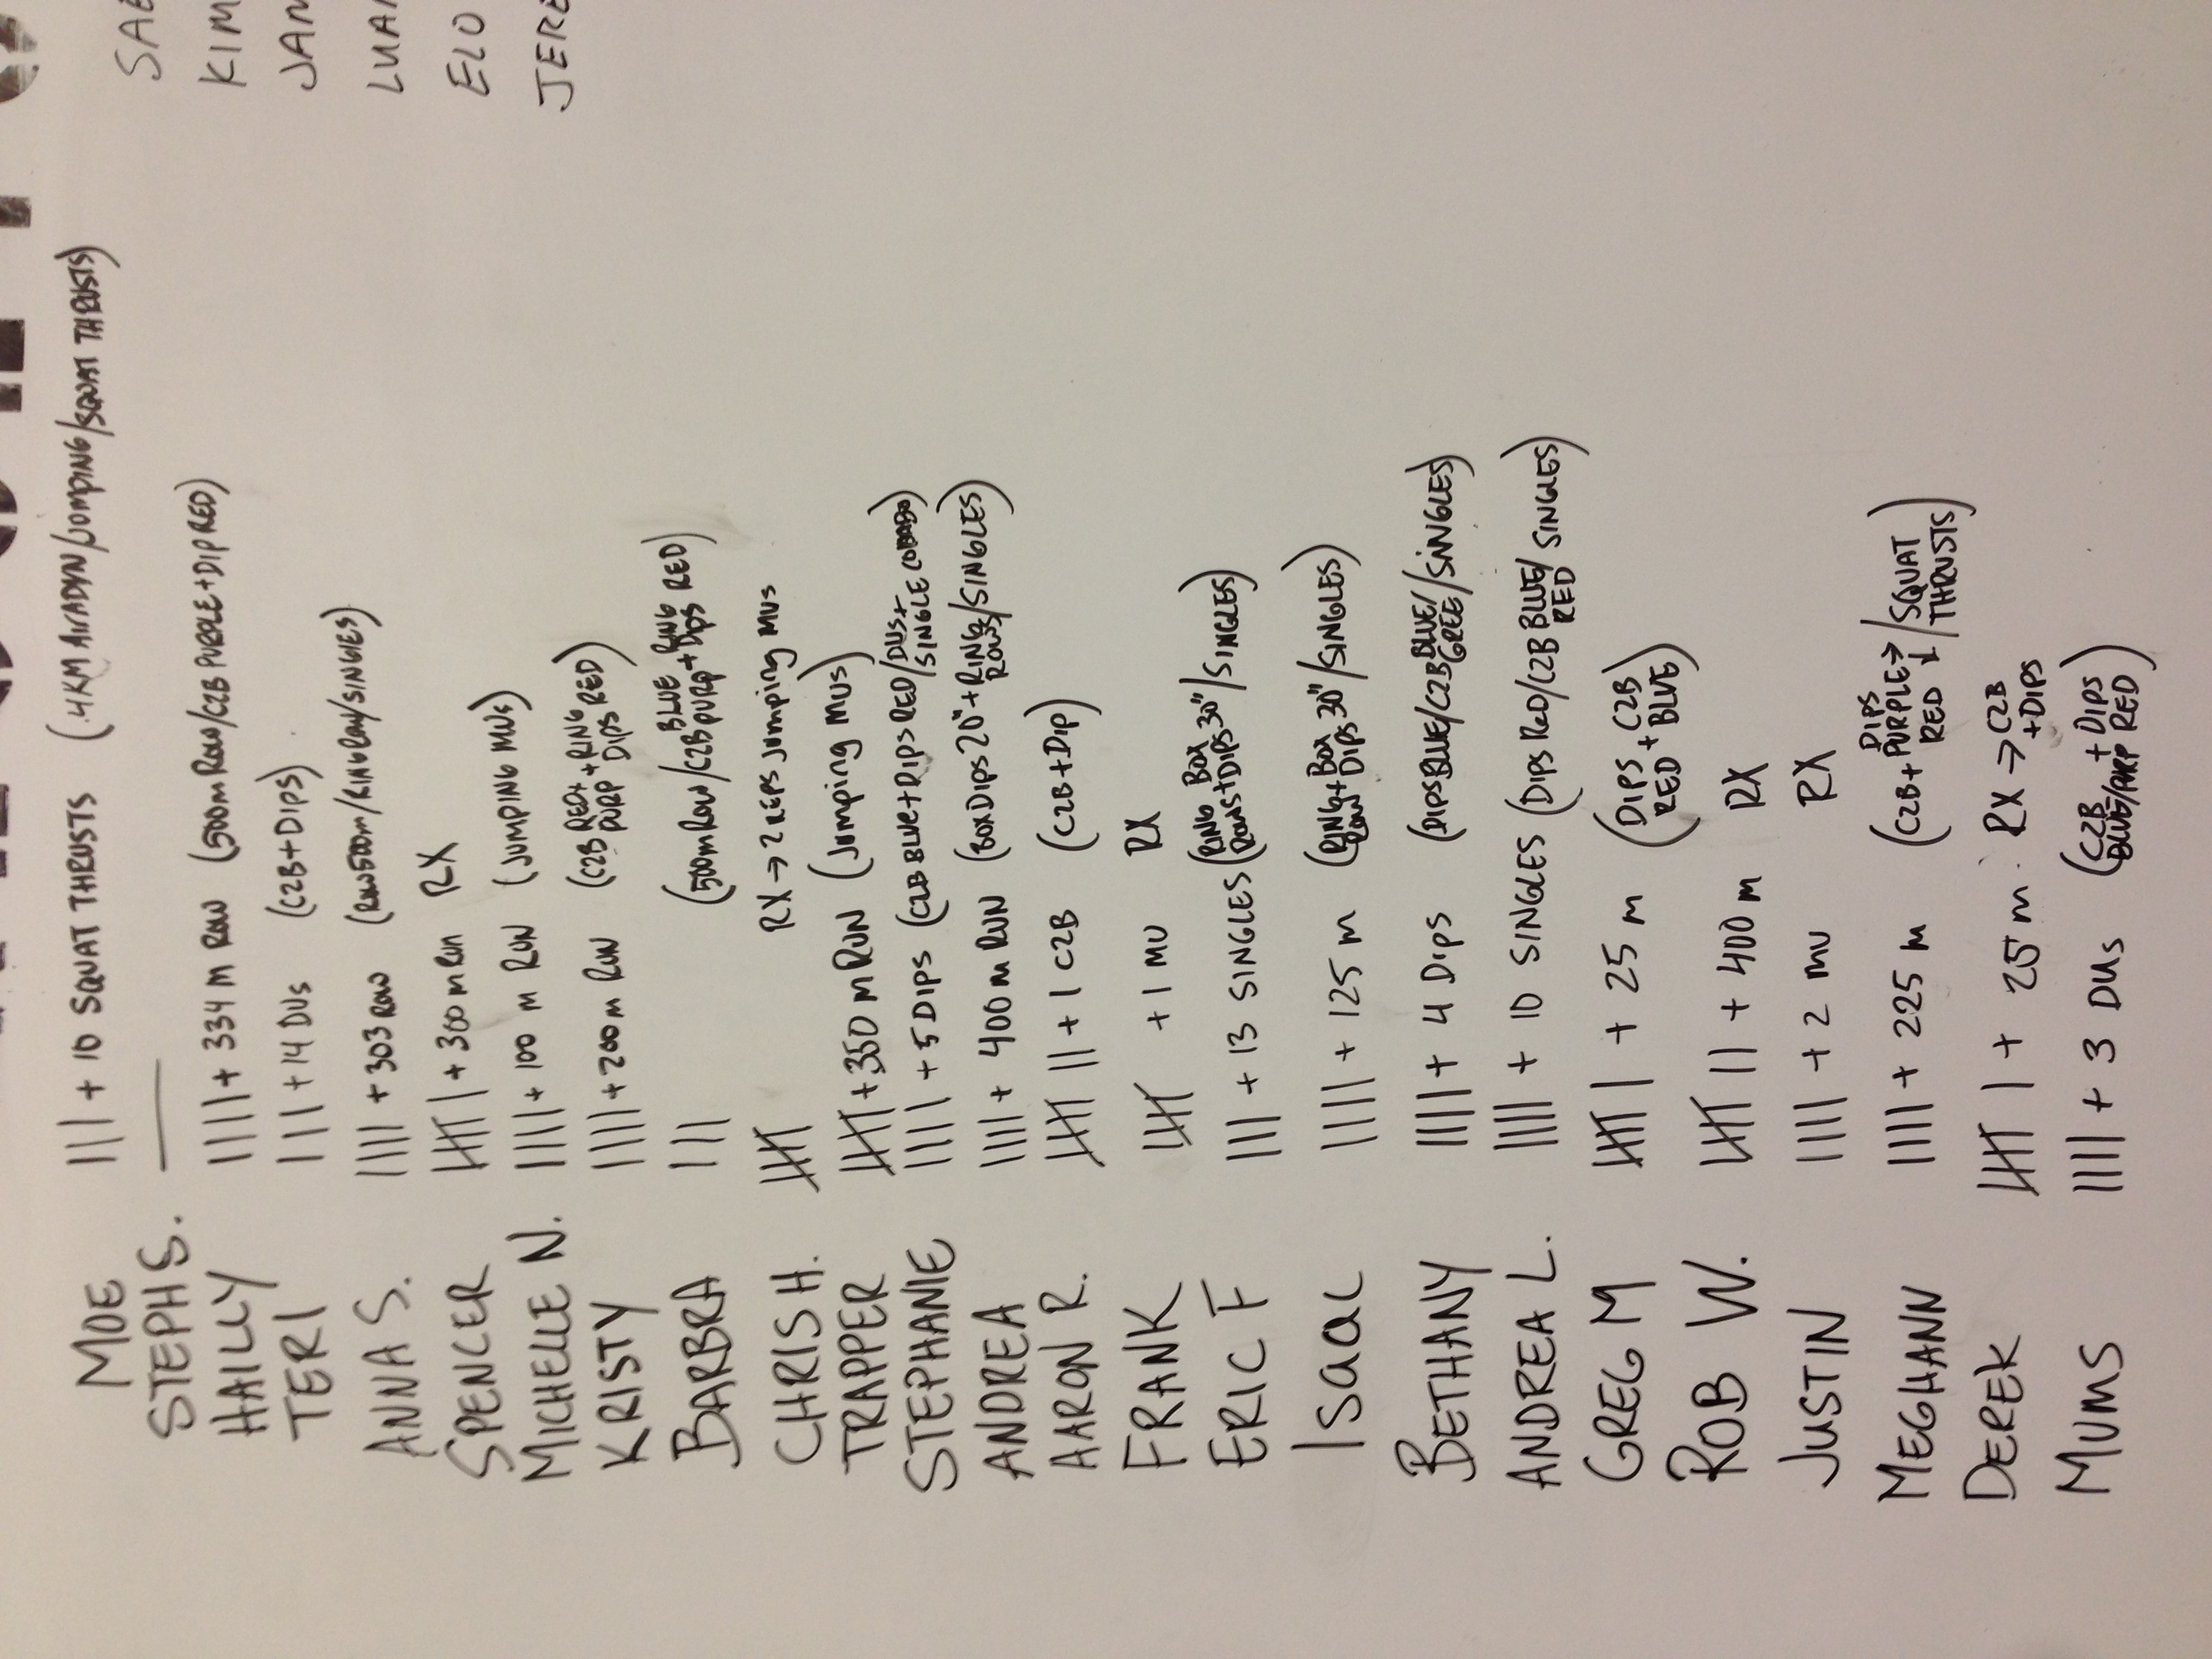 MOE ||| + 10 SQUAT THRUSTS (.4KM AIRADYN/JUMPING/SQUAT THRUSTS)
STEPH S. —
HAILLY |||| + 334 m ROW (500m ROW/C2B PURPLE+DIP RED)
TERI ||| + 14 DUs (C2B+DIPS)
ANNA S. |||| + 303 ROW (ROW 500m/RING ROW/SINGLES)
SPENCER 卌 | + 300 m RUN RX
MICHELLE N. |||| + 100 m RUN (JUMPING MUs)
KRISTY |||| + 200 m RUN (C2B RED+ PURP +RING DIPS RED)
BARBRA ||| (500m ROW/C2B BLUE PURP + RING DIPS RED)
CHRIS H. 卌 RX → 2 REPS JUMPING MUS
TRAPPER 卌 + 350 m RUN (JUMPING MUS)
STEPHANIE |||| + 5 DIPS (C2B BLUE+DIPS RED/DUS+ SINGLE
ANDREA |||| + 400 m RUN (BOX DIPS 20"+RING ROWS/SINGLES)
AARON R. 卌 || + 1 C2B (C2B+DIP)
FRANK 卌 + 1 MU RX
ERIC F ||| + 13 SINGLES (RING ROWS+BOX DIPS 30"/SINGLES)
Isaac |||| + 125 m (RING ROW+BOX DIPS 30"/SINGLES)
BETHANY |||| + 4 DIPS (DIPS BLUE/C2B BLUE/GREE/SINGLES)
ANDREA L. |||| + 10 SINGLES (DIPS RED/C2B BLUE/RED SINGLES)
GREG M 卌 | + 25 m (DIPS RED + C2B BLUE)
ROB W. 卌 || + 400 m RX
JUSTIN |||| + 2 MU RX
MEGHANN |||| + 225 m (C2B + DIPS PURPLE→ RED ↓/SQUAT THRUSTS)
DEREK 卌 | + 25 m RX → C2B +DIPS
MUMS |||| + 3 DUs (C2B BLUE/PURP + DIPS RED)
SAE
KIM
JAM
LUAN
ELO
JERE